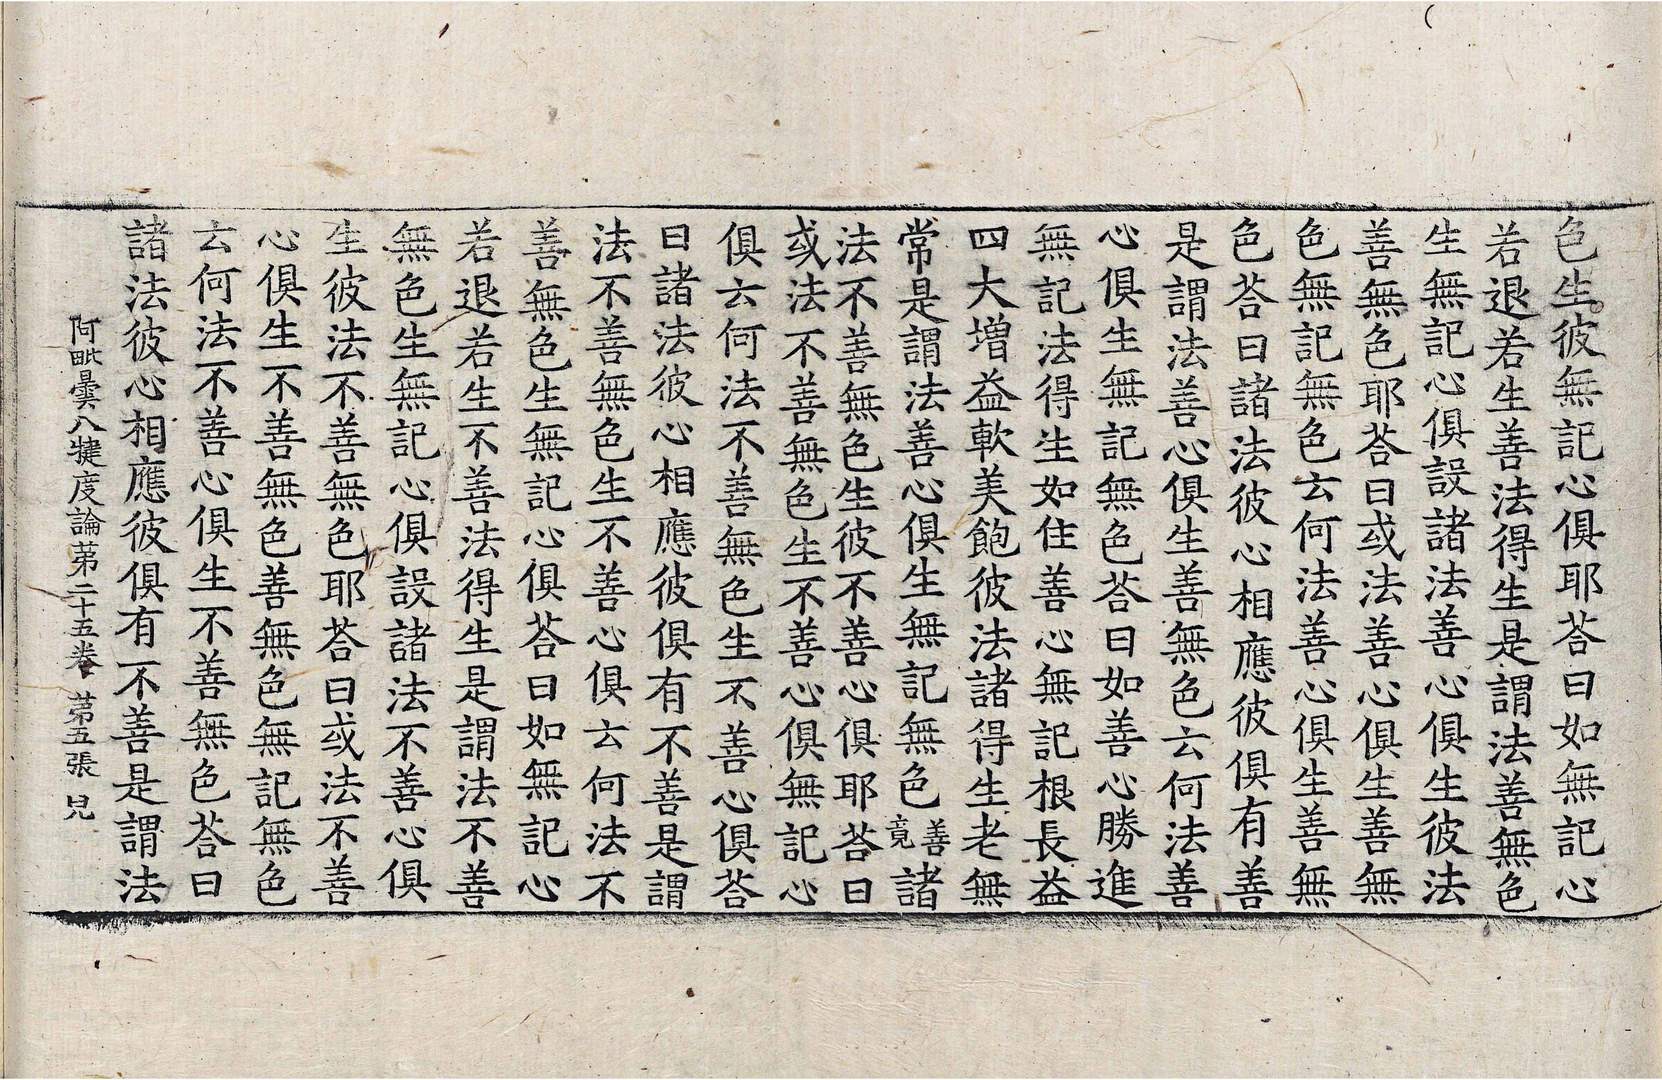 色生彼無記心俱耶荅曰如無記心
若退若生善法得生是謂法善無色
生無記心俱設諸法善心俱生彼法
善無色耶荅曰或法善心俱生善無
色無記無色云何法善心俱生善無
色荅曰諸法彼心相應彼俱有善
是謂法善心俱生善無色云何法善
心俱生無記無色荅曰如善心勝進
無記法得生如住善心無記根長益
四大增益軟美飽彼法諸得生老無
常是謂法善心俱生無記無色善竟諸
法不善無色生彼不善心俱耶荅曰
或法不善無色生不善心俱無記心
俱云何法不善無色生不善心俱荅
曰諸法彼心相應彼俱有不善是謂
法不善無色生不善心俱云何法不
善無色生無記心俱荅曰如無記心
若退若生不善法得生是謂法不善
無色生無記心俱設諸法不善心俱
生彼法不善無色耶荅曰或法不善
心俱生不善無色善無色無記無色
云何法不善心俱生不善無色荅曰
諸法彼心相應彼俱有不善是謂法
阿毗曇八犍度論第二十五卷 第五張 兄